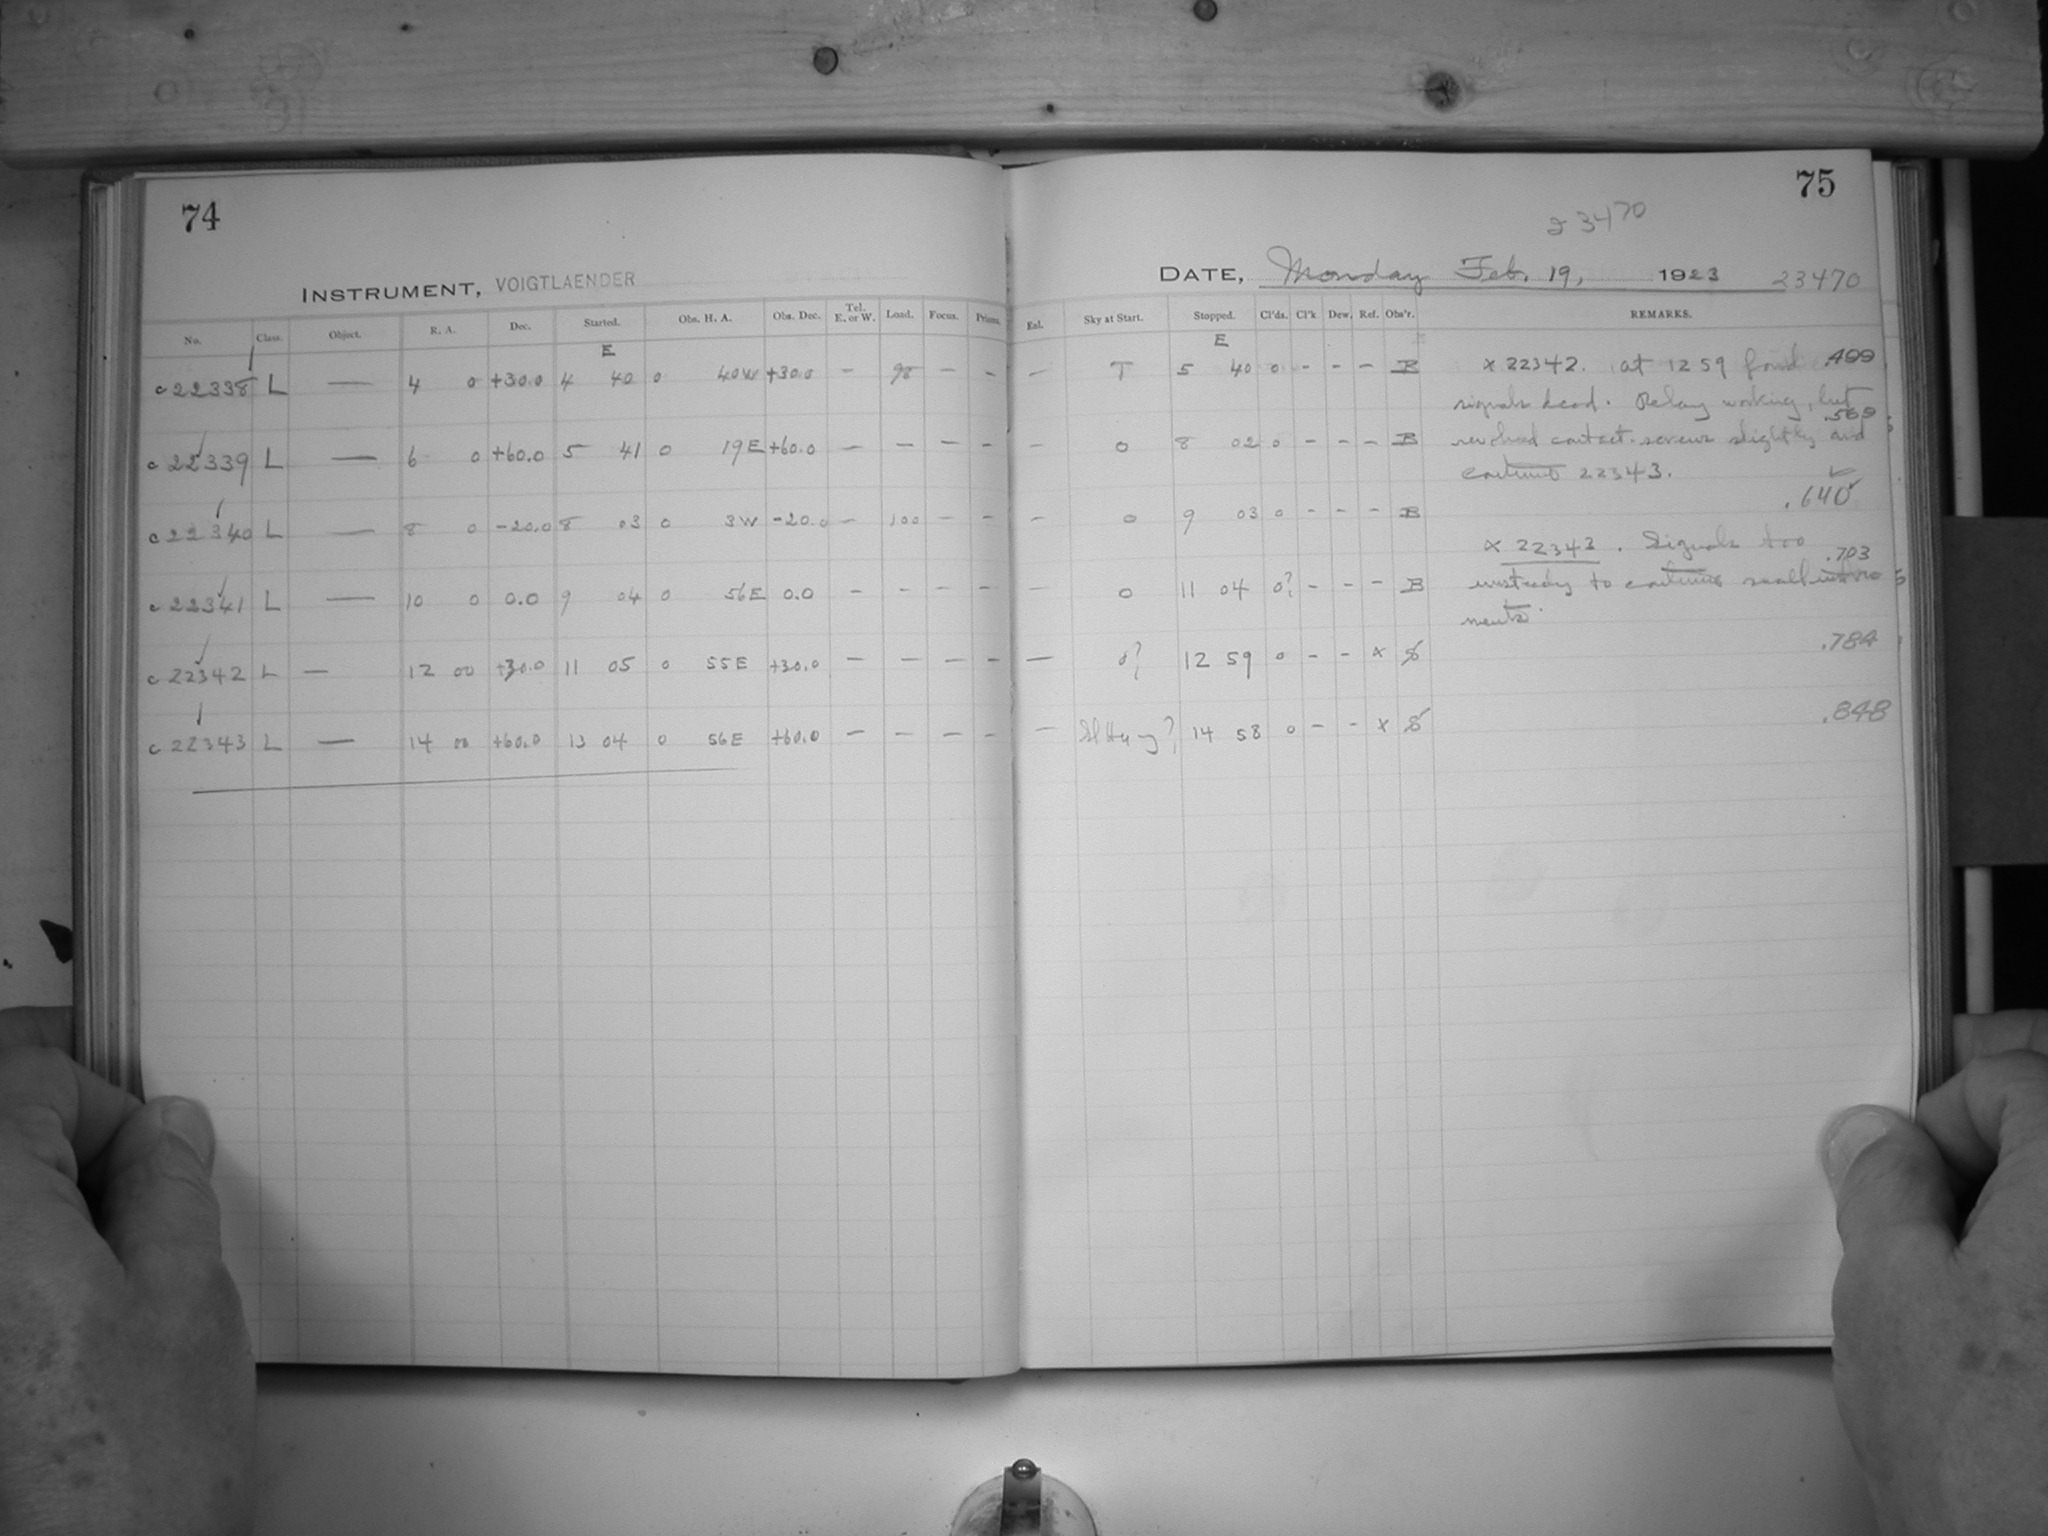 74
INSTRUMENT, VOIGTLAENDER
No. Class. Object. R. A. Dec. Started. Obs. H. A. Obs. Dec. Tel. E. or W. Load. Focus. Prisms.
E
c 22338 L — 4 0 +30.0 4 40 0 40W +30.0 - 98 - -
c 22339 L — 6 0 +60.0 5 41 0 19E +60.0 - - - -
c 22340 L — 8 0 -20.0 8 03 0 3W -20.0 - 100 - -
c 22341 L — 10 0 0.0 9 04 0 56E 0.0 - - - -
c 22342 L — 12 00 +30.0 11 05 0 55E +30.0 - - - -
c 22343 L — 14 00 +60.0 13 04 0 56E +60.0 - - - -
75
23470
DATE, Monday Feb. 19, 1923 23470
Exl. Sky at Start. Stopped. Cl'ds. Cl'k Dew. Ref. Obs'r. REMARKS.
E
- T 5 40 0 - - - B
- 0 8 02 0 - - - B
- 0 9 03 0 - - - B
- 0 11 04 0? - - - B
- 0? 12 59 0 - - x
- Sl Hazy? 14 58 0 - - x
x 22342. at 12 59 found .499
signals dead. Relay working, but
.569
revolved contact screws slightly and
continue 22343.
.640
x 22343. Signals too
.703
unsteady to continue small instru
ments.
.784
.848